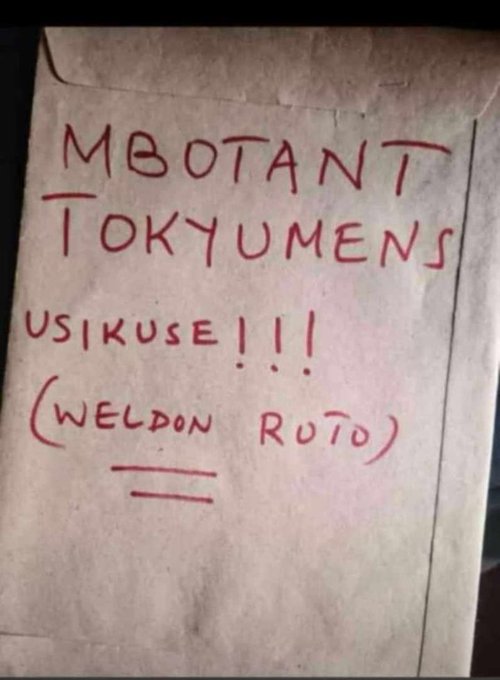 MBOTANT
TOKYUMENS
USIKUSE!!!
(WELDON RUTO)